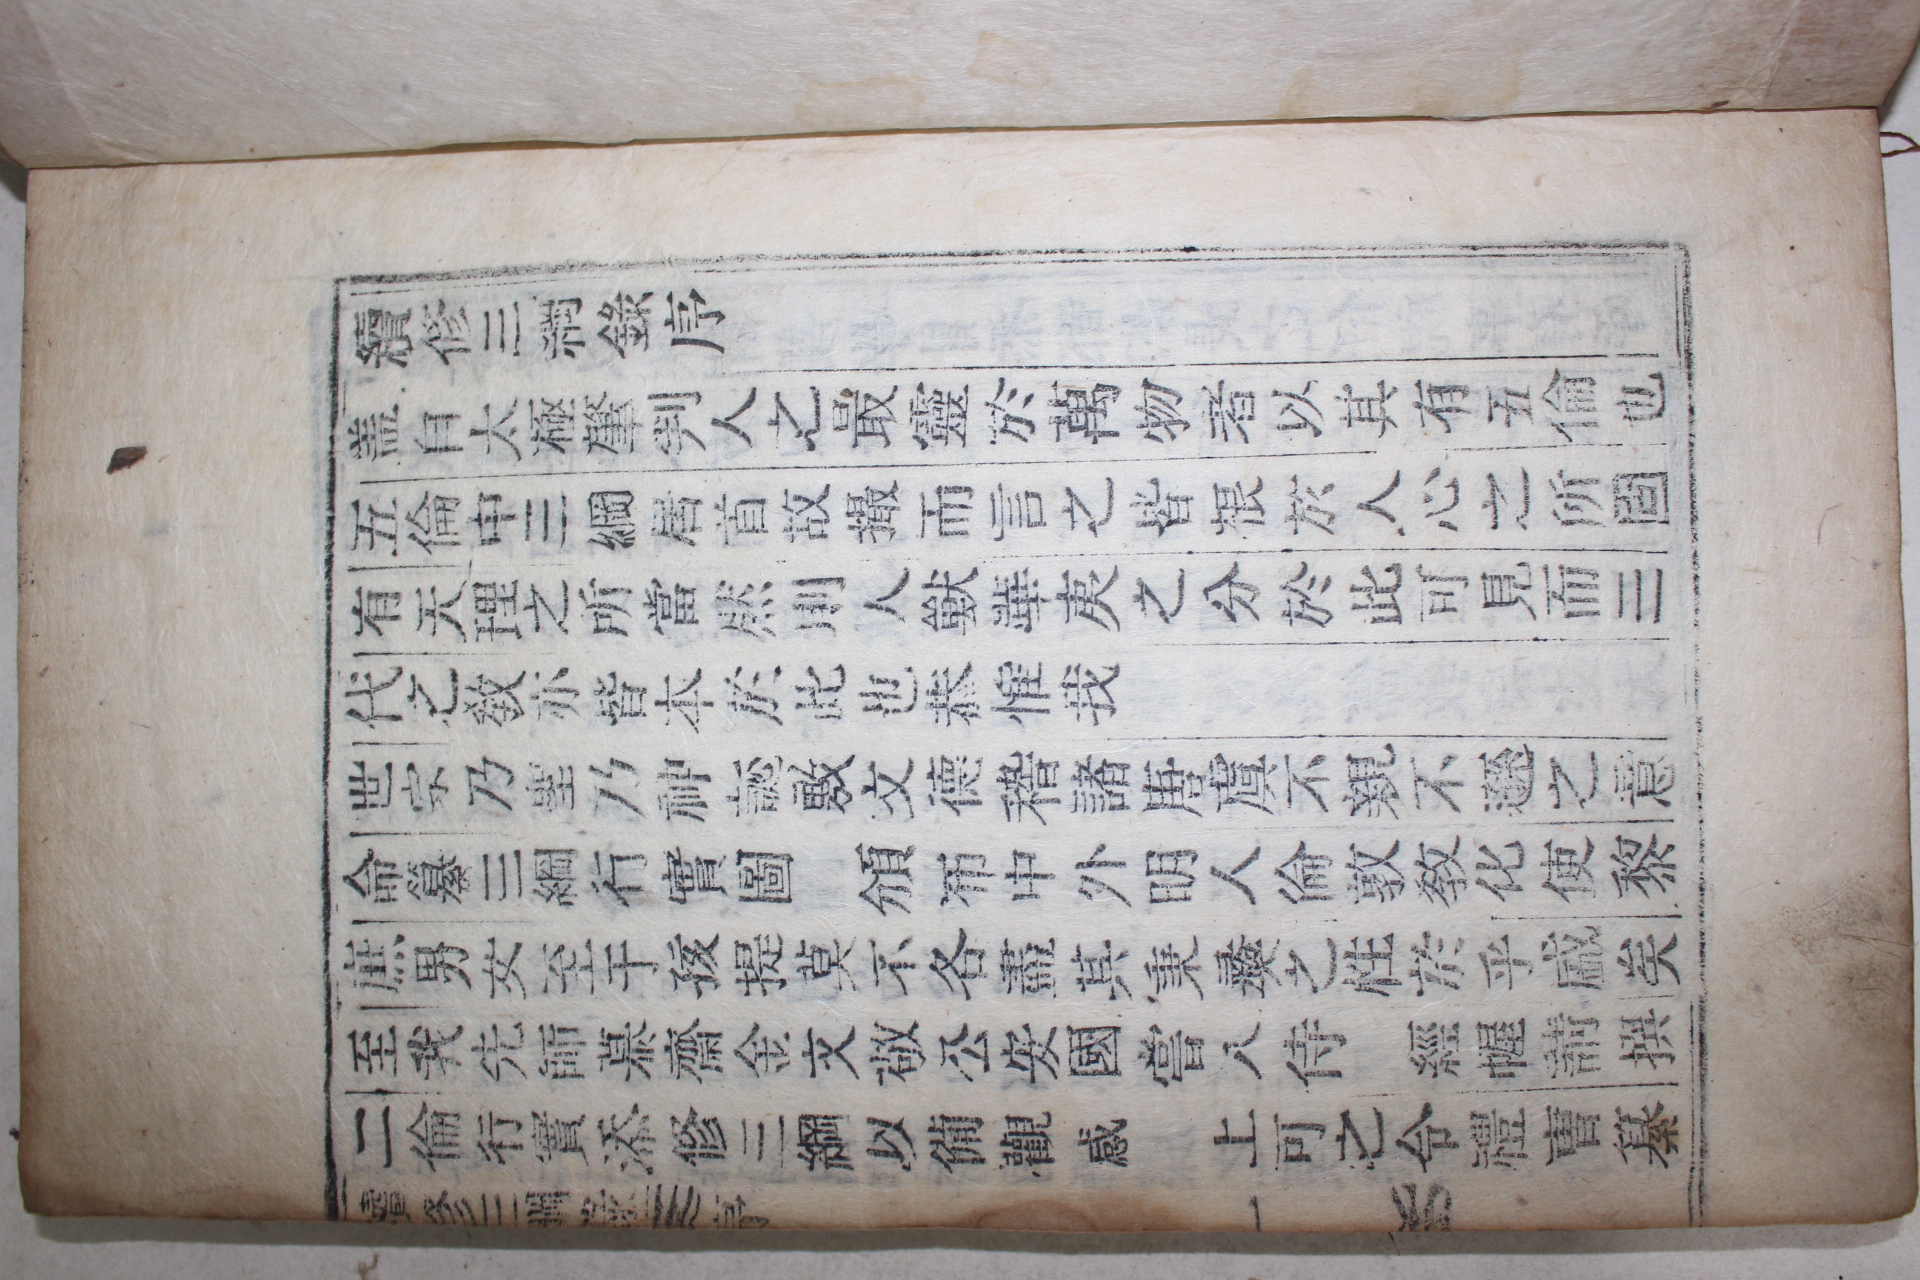 續修三綱錄序
盖自太極肇判人之最靈於萬物者以其有五倫也
五倫中三綱居首故撮而言之皆根於人心之所固
有天理之所當然則人獸華夷之分於此可見而三
代之敎亦皆本於此也恭惟我
世宗乃聖乃神誕敷文德稽諸唐虞不親不遜之意
命纂三綱行實圖 頒布中外明人倫敦敎化使黎
庶男女至于孩提莫不各盡其秉彛之性於乎盛矣
至我先師慕齋金文敬公安國嘗入侍 經幄請撰
二倫行實添修三綱以備觀感 上可之令禮曹纂
續修三綱錄 序 一